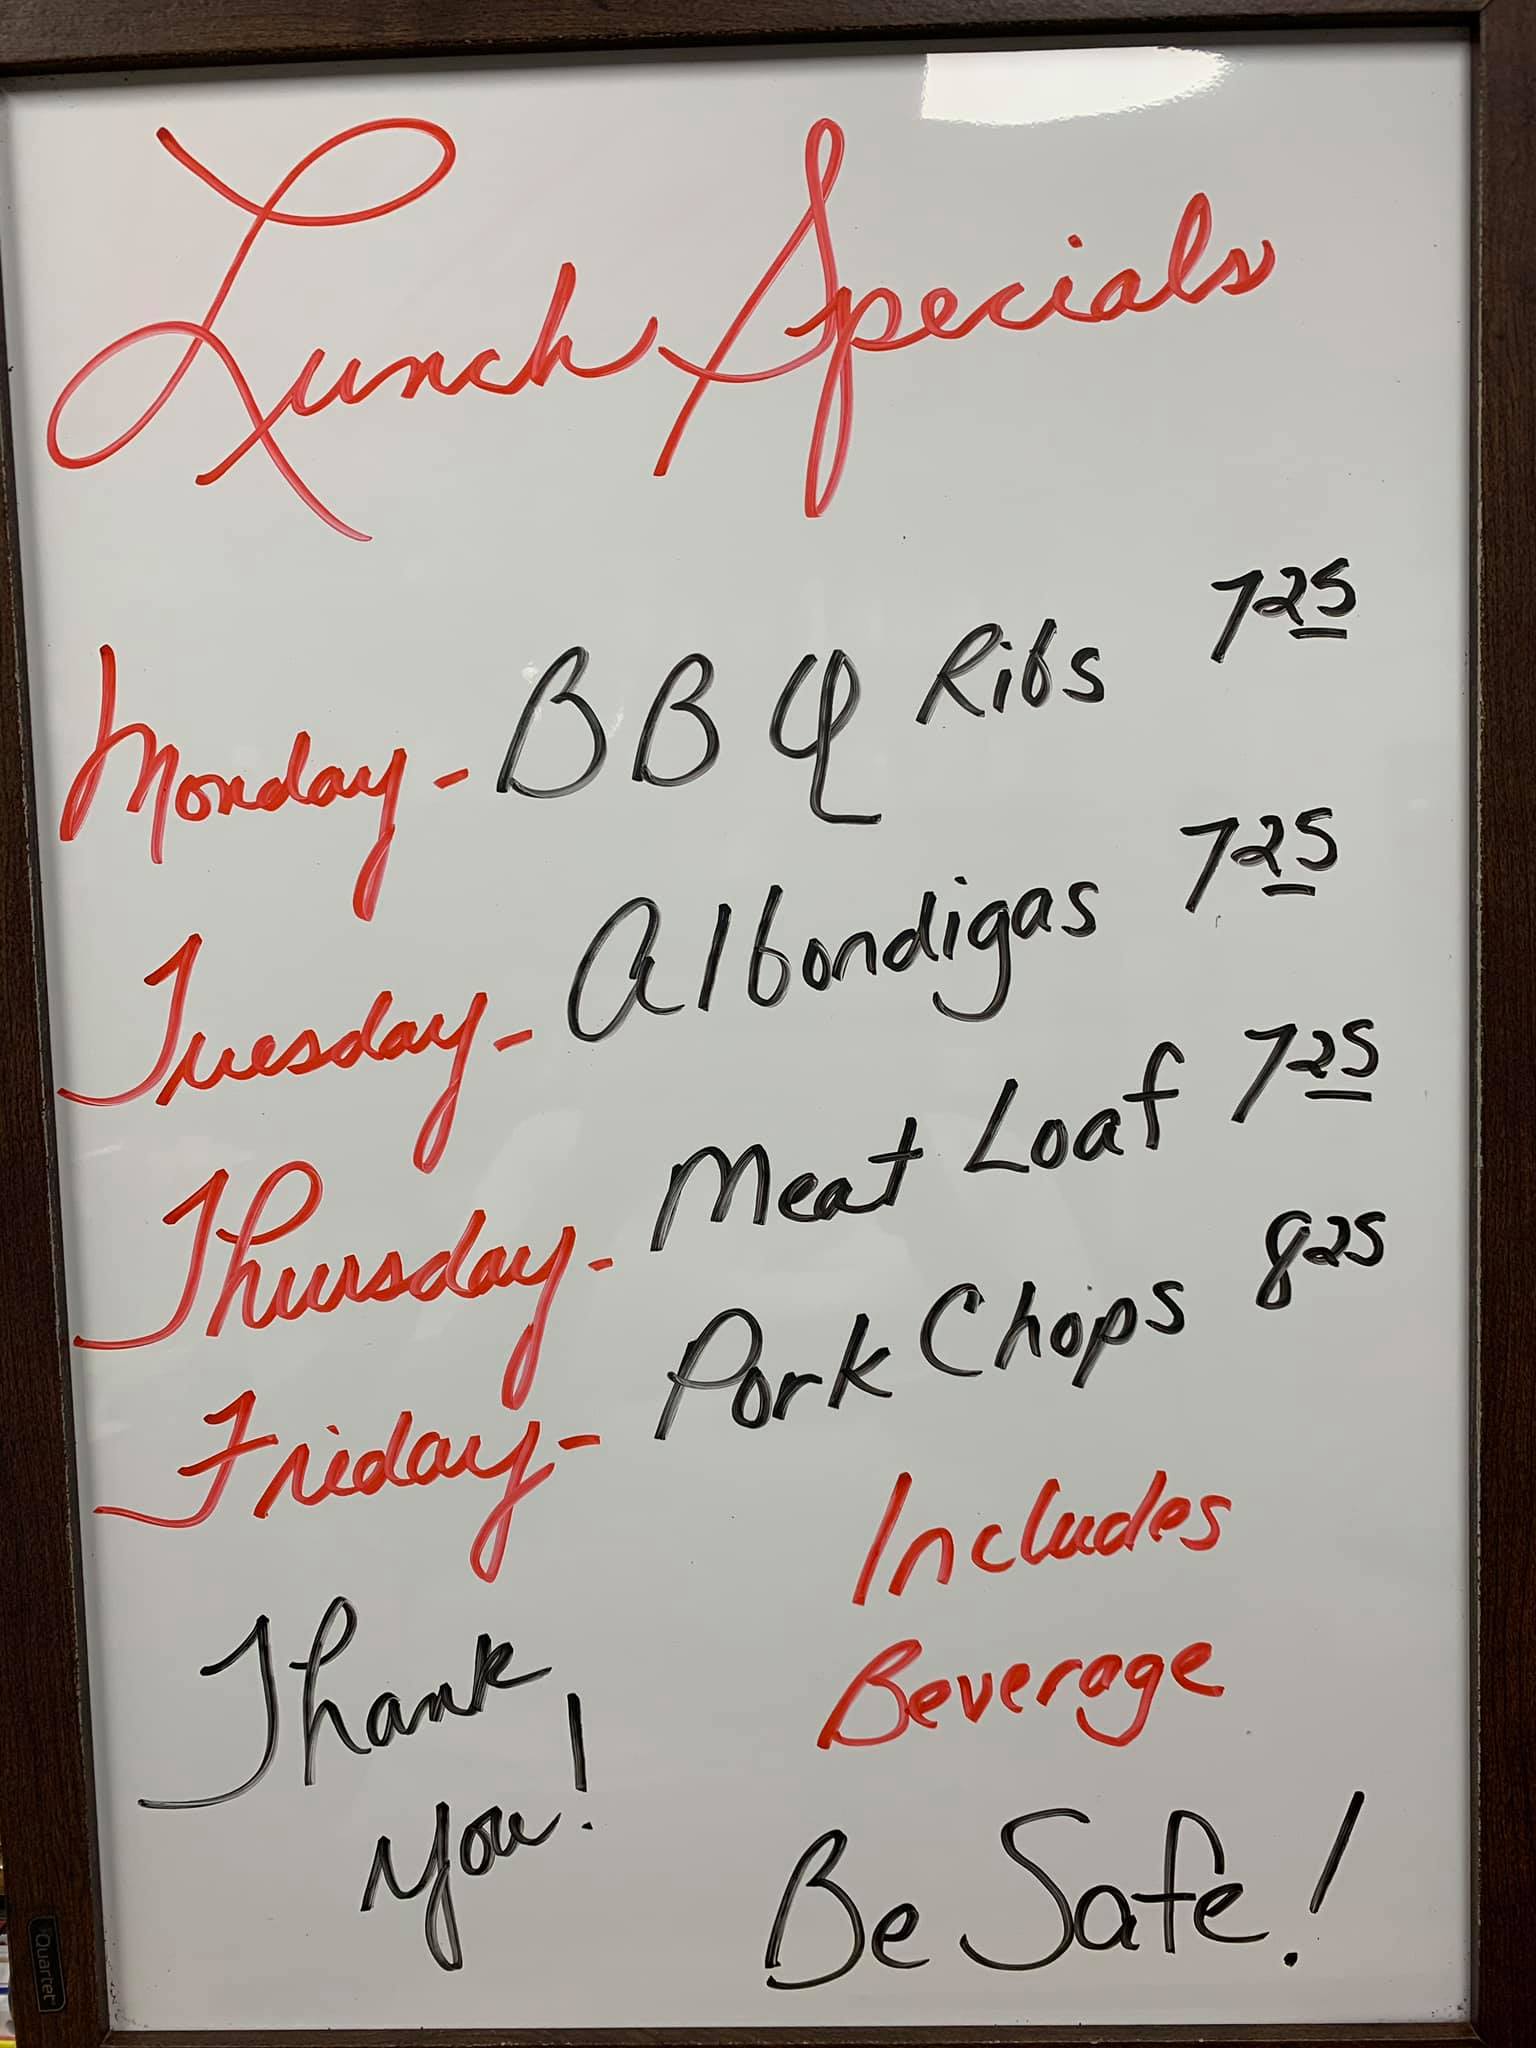 Lunch Specials
Monday - BBQ Ribs 7 25
Tuesday - Albondigas 7 25
Thursday - Meat Loaf 7 25
Friday - Pork Chops 8 25
Includes
Beverage
Thank
you!
Be Safe!
Quartet